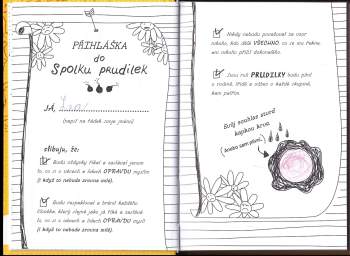 PŘIHLÁŠKA
do
Spolku prudilek
JÁ,
(napiš na řádek svoje jméno)
slibuju, že:
Budu vždycky říkat a zastávat jenom
to, co si o věcech a lidech OPRAVDU myslím
(i když to nebude zrovna milé).
Budu respektovat a bránit každého
člověka, který stejně jako já říká a zastává
to, co si o věcech a lidech OPRAVDU myslí
(i když to nebude zrovna milé).
Nikdy nebudu považovat za vzor
někoho, kdo dělá VŠECHNO, co se mu řekne,
ani nebudu příliš dokonalá.
Jsem prý PRUDILKA
Svůj souhlas stvrď
kapkou krve
(anebo sem plivni.)